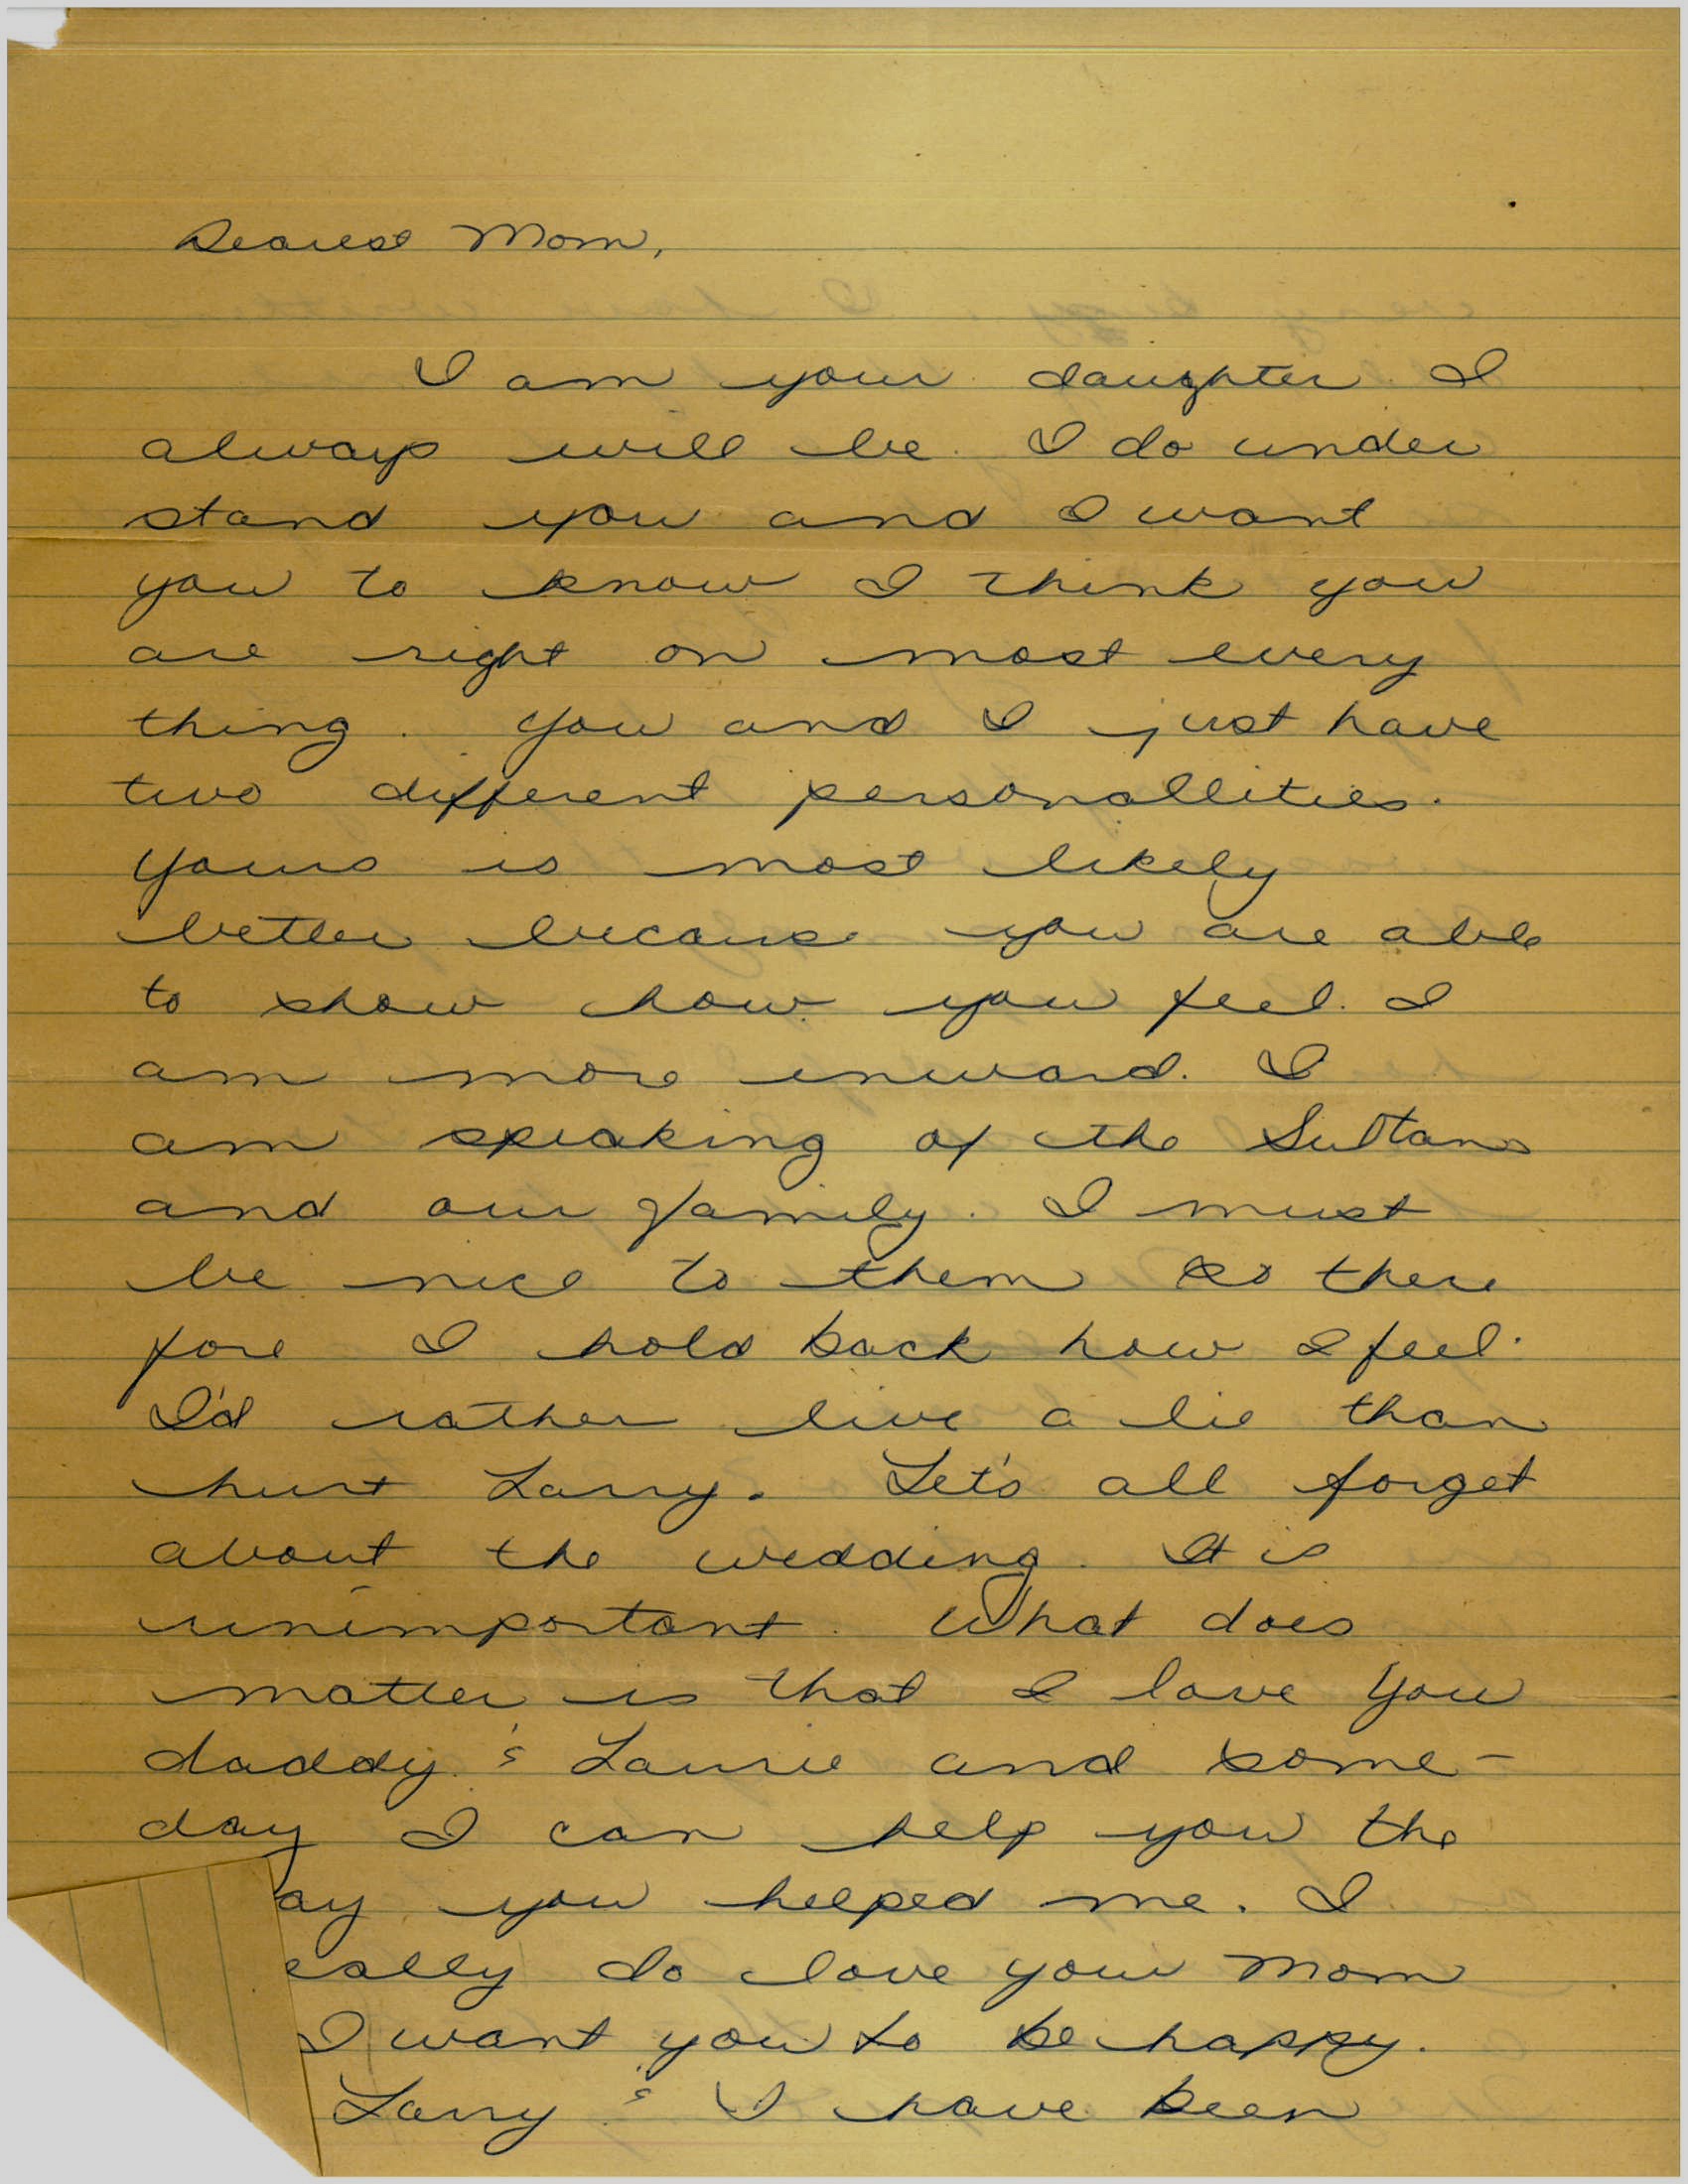 Dearest Mom,
I am your daughter. I
always will be. I do under
stand you and I want
you to know I think you
are right on most every
thing. You and I just have
two different personallities.
Yours is most likely
better because you are able
to show how you feel. I
am more inward. I
am speaking of the Sultans
and our family. I must
be nice to them so there
fore I hold back how I feel.
I'd rather live a lie than
hurt Larry. Let's all forget
about the wedding. It is
unimportant. What does
matter is that I love you
daddy & Laurie and some-
day I can help you the
ay you helped me. I
eally do love you Mom
I want you to be happy.
Larry & I have been